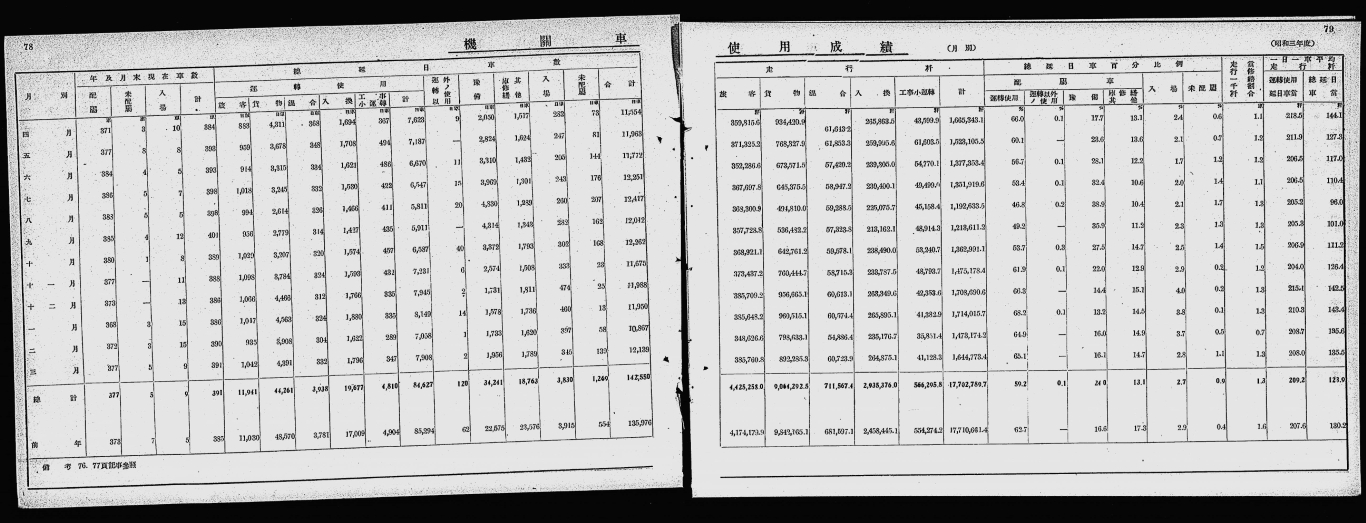 78
機關車
月別
年及月末現在車數
配屬 未配屬 入場 計
總延日車數
運轉使用
旅客 貨物 混合 入換 工事小運轉 計
運轉以外ノ使用 豫備 庫修繕其他 入場 未配屬 合計
四月 371 3 10 384 883 4,311 368 1,694 367 7,623 9 2,050 1,517 282 73 11,554
五月 377 8 8 393 959 3,678 348 1,708 494 7,187 — 2,824 1,624 247 81 11,963
六月 384 4 5 393 914 3,315 334 1,621 486 6,670 11 3,310 1,432 205 144 11,772
七月 386 5 7 398 1,018 3,245 332 1,530 422 6,547 15 3,969 1,301 243 176 12,251
八月 388 5 5 398 994 2,614 326 1,466 411 5,811 20 4,830 1,289 260 207 12,417
九月 385 4 12 401 956 2,779 314 1,427 435 5,911 — 4,314 1,343 282 162 12,012
十月 380 1 8 389 1,029 3,207 320 1,574 457 6,587 40 3,372 1,793 302 168 12,262
十一月 377 — 11 388 1,098 3,784 324 1,593 432 7,231 6 2,574 1,508 333 23 11,675
十二月 373 — 13 386 1,066 4,466 312 1,766 335 7,945 2 1,731 1,811 474 25 11,988
一月 368 3 15 386 1,047 4,563 324 1,880 335 8,149 14 1,578 1,736 460 13 11,950
二月 372 3 15 390 935 3,908 304 1,622 289 7,058 1 1,733 1,620 397 58 10,867
三月 377 5 9 391 1,042 4,391 332 1,796 347 7,908 2 1,956 1,789 345 139 12,139
總計 377 5 9 391 11,941 44,261 3,938 19,677 4,810 84,627 120 34,241 18,763 3,830 1,269 142,850
前年 373 7 5 385 11,030 48,570 3,781 17,009 4,904 85,294 62 22,575 23,576 3,915 554 135,976
備考 76. 77頁記事參照
79
使用成績 (月別)
(昭和三年度)
走行粁
旅客 貨物 混合 入換 工事小運轉 計
總延日車百分比例
配屬車
運轉使用 運轉以外ノ使用 豫備 庫修繕其他 入場 未配屬
走行一千粁當修繕割合
一日一車平均走行粁
運轉使用延日車當 總延日車當
359,815.6 934,420.9 61,643.2 265,863.5 43,599.9 1,665,343.1 66.0 0.1 17.7 13.1 2.4 0.6 1.1 218.5 144.1
371,325.2 768,327.9 61,853.3 259,905.6 61,693.5 1,523,105.5 60.1 — 23.6 13.6 2.1 0.7 1.2 211.9 127.3
352,286.6 673,571.5 57,420.2 239,305.0 54,770.1 1,377,353.4 56.7 0.1 28.1 12.2 1.7 1.2 1.2 206.5 117.0
367,697.8 645,375.5 58,947.2 230,400.1 49,499.0 1,351,919.6 53.4 0.1 32.4 10.6 2.0 1.4 1.1 206.5 110.4
368,300.9 494,810.0 59,288.5 225,075.7 45,158.4 1,192,633.5 46.8 0.2 38.9 10.4 2.1 1.7 1.3 205.2 96.0
357,728.8 536,482.2 57,323.8 213,162.1 48,914.3 1,213,611.2 49.2 — 35.9 11.2 2.3 1.3 1.3 205.3 101.0
368,921.1 642,761.2 59,578.1 238,490.0 53,240.7 1,362,991.1 53.7 0.3 27.5 14.7 2.5 1.4 1.5 206.9 111.2
373,437.2 760,444.7 58,715.3 233,787.5 48,793.7 1,475,178.4 61.9 0.1 22.0 12.9 2.9 0.2 1.2 204.0 126.4
385,709.2 956,665.1 60,613.1 263,349.6 42,353.6 1,708,690.6 66.3 — 14.4 15.1 4.0 0.2 1.3 215.1 142.5
385,648.2 960,515.1 60,574.4 265,895.1 41,382.9 1,714,015.7 68.2 0.1 13.2 14.5 3.8 0.1 1.3 210.3 143.4
348,626.6 798,633.1 54,886.4 235,176.7 35,851.4 1,473,174.2 64.9 — 16.0 14.9 3.7 0.5 0.7 208.7 135.6
385,760.8 892,285.3 60,723.9 264,875.1 41,128.3 1,644,773.4 65.1 — 16.1 14.7 2.8 1.1 1.3 208.0 135.5
4,425,258.0 9,064,292.5 711,567.4 2,935,376.0 566,295.8 17,702,789.7 59.2 0.1 24.0 13.1 2.7 0.9 1.3 209.2 123.9
4,174,179.9 9,842,765.1 681,597.1 2,458,445.1 554,274.2 17,710,661.4 62.7 — 16.6 17.3 2.9 0.4 1.6 207.6 130.2